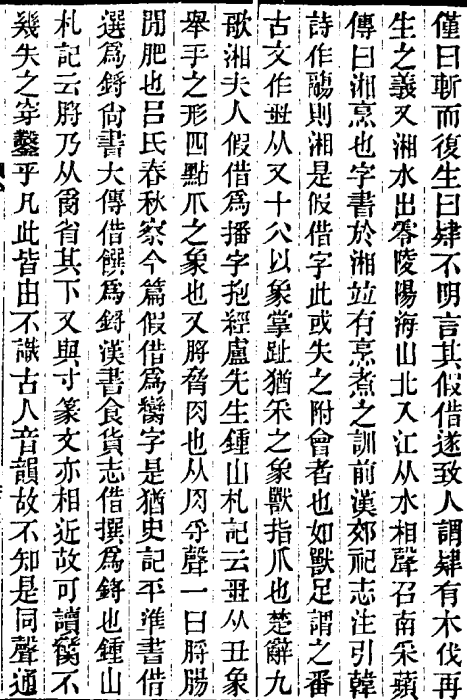 僅曰斬而復生曰肄不明言其假借遂致人謂肄有木伐再
生之義又湘水出零陵陽海山北入江从水相聲召南采蘋
傳曰湘烹也字書於湘竝有烹煮之訓前漢郊祀志注引韓
詩作鬺則湘是假借字此或失之附會者也如獸足謂之番
古文作𠚒从又十八以象掌趾猶釆之象獸指爪也楚辭九
歌湘夫人假借爲播字抱經盧先生鍾山札記云𠚒从丑象
舉手之形四點爪之象也又脟脅肉也从肉寽聲一曰脟腸
閒肥也呂氏春秋察今篇假借爲臠字是猶史記平準書借
選爲鋝尙書大傳借饌爲鋝漢書食貨志借撰爲鋝也鍾山
札記云脟乃从𠬪省其下又與寸篆文亦相近故可讀臠不
幾失之穿鑿乎凡此皆由不識古人音韻故不知是同聲通